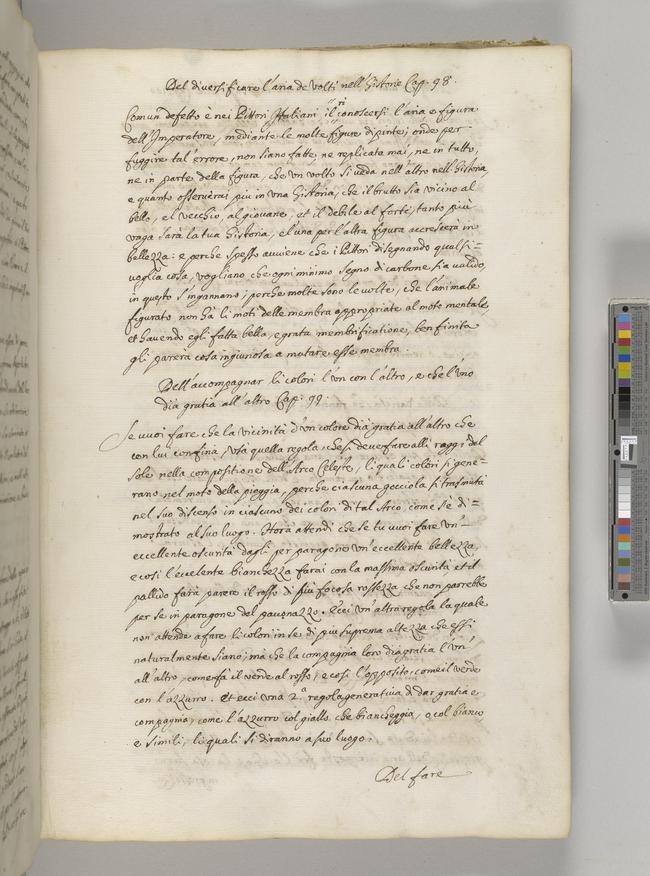 Del diversificare l'aria de volti nell'Historie Cap. 98.
Comun defetto è nei Pittori Italiani il riconoscersi l'aria e figura
dell'Imperatore, mediante le molte figure dipinte; onde per
fuggire tal'errore, non siano fatte, ne replicate mai, ne in tutto,
ne in parte della figura, che un volto si veda nell'altro nell'historia
e quanto osserverai piu in una Historia, che il brutto sia vicino al
bello, e'l vecchio, al giovane, et il debile al forte, tanto più
vaga sarà la tua historia, e l'una per l'altra figura accrescerà in
bellezza: e perche spesso avviene che i Pittori disegnando qualsi=
voglia cosa, vogliano che ogni minimo segno di carbone sia valido,
in questo s'ingannano, perche molte sono le volte, che l'animale
figurato non hà li moti delle membra appropriate al moto mentale,
et havendo egli fatta bella, e grata membrificatione, ben finita
gli parerà cosa ingiuriosa a mutare esse membra.
Dell'accompagnar li colori l'un con l'altro, e che l'uno
dia gratia all'altro Cap. 99.
Se vuoi fare che la vicinità d'un colore dia gratia all'altro che
con lui confina, usa quella regola, che si deve fare alli raggi del
sole nella compositione dell'Arco Celeste, li quali colori si gene=
rano nel moto della pioggia, perche ciascuna gocciola si trasmuta
nel suo discenso in ciascuno dei colori di tal Arco, come s'è di=
mostrato al suo luogo. Hora attendi che se tu vuoi fare un'
eccellente oscurità dagli per paragone un'eccellente bellezza,
e così l'eccelente bianchezza farai con la massima oscurità et il
pallido farà parere il rosso di più focosa rossezza che non parrebbe
per se in paragone del pauonazzo. Ecci un'altra regola la quale
non attende a fare li colori in se di più suprema altezza che essi
naturalmente siano; mà che la compagnia loro dia gratia l'un'
all'altro, come fà il verde al rosso, e così l'opposito, come il verde
con l'azzurro. Et ecci una 2.a regola generativa di dar gratia e
compagnia, come l'azzurro col giallo che biancheggia, o col bianco,
e simili, li quali si diranno a suo luogo.
Del fare